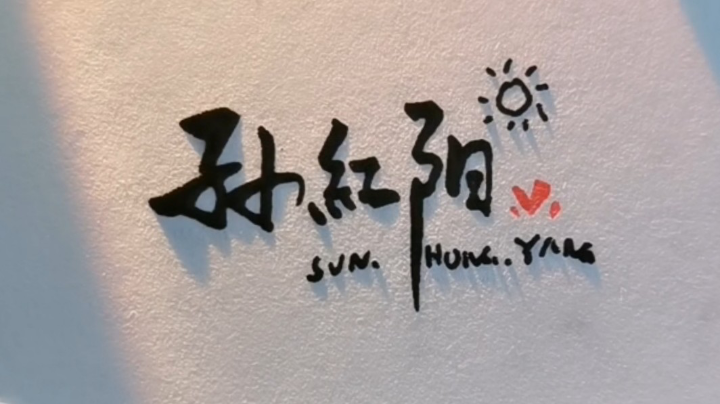 孙红阳
SUN. HONG. YANG